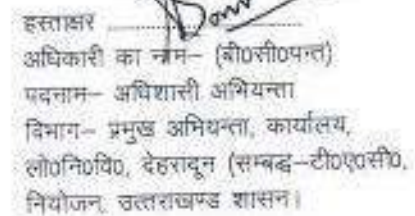 हस्ताक्षर ....................
अधिकारी का नाम– (बी0सी0पन्त)
पदनाम– अधिशासी अभियन्ता
विभाग– प्रमुख अभियन्ता, कार्यालय,
लो0नि0वि0, देहरादून (सम्बद्ध–टी0ए0सी0,
नियोजन, उत्तराखण्ड शासन।